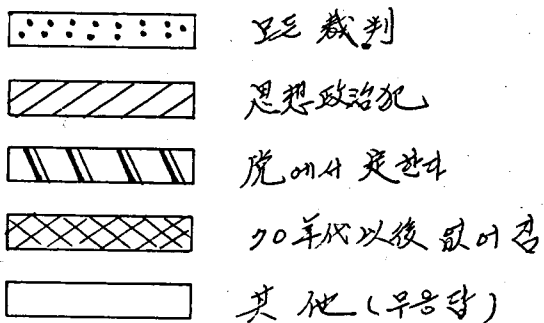 모든 裁判
思想政治犯
党에서 定한다
70年代以後 없어짐
其他 (무응답)